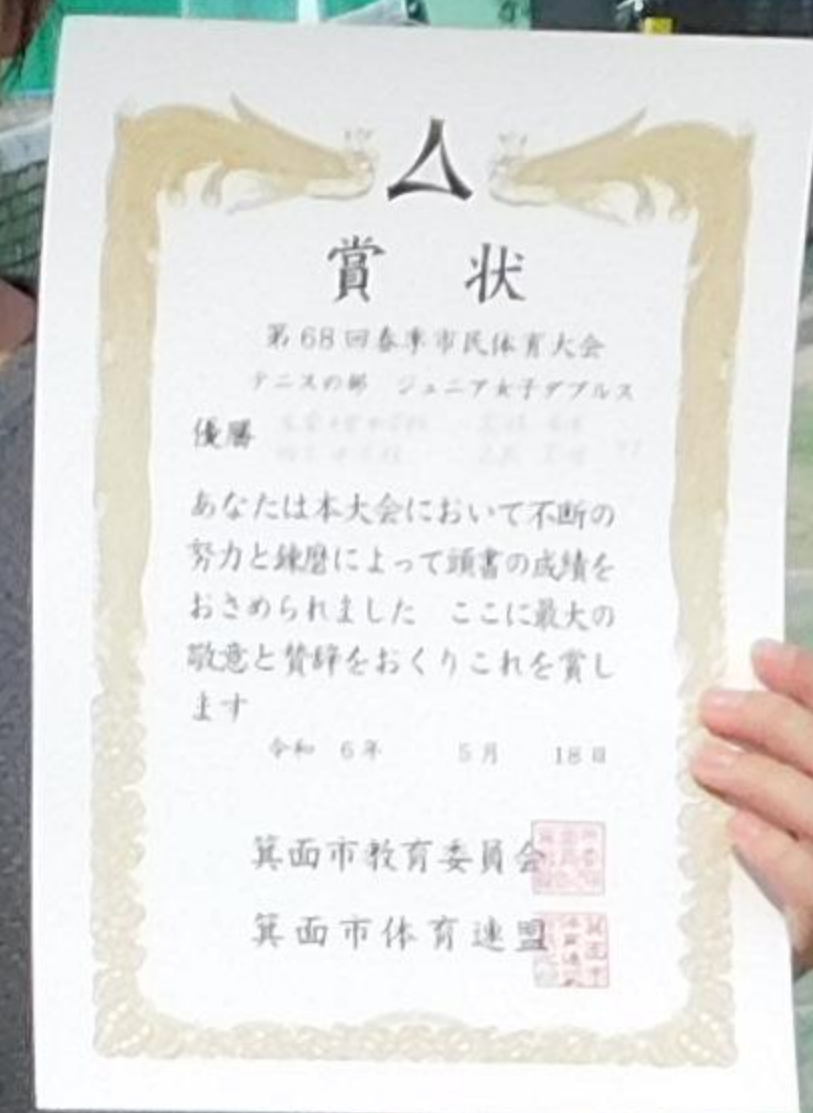 賞状
第68回春季市民体育大会
テニスの部 ジュニア女子ダブルス
優勝
あなたは本大会において不断の
努力と錬磨によって頭書の成績を
おさめられました ここに最大の
敬意と賛辞をおくりこれを賞し
ます
令和 6年 5月 18日
箕面市教育委員会
箕面市体育連盟